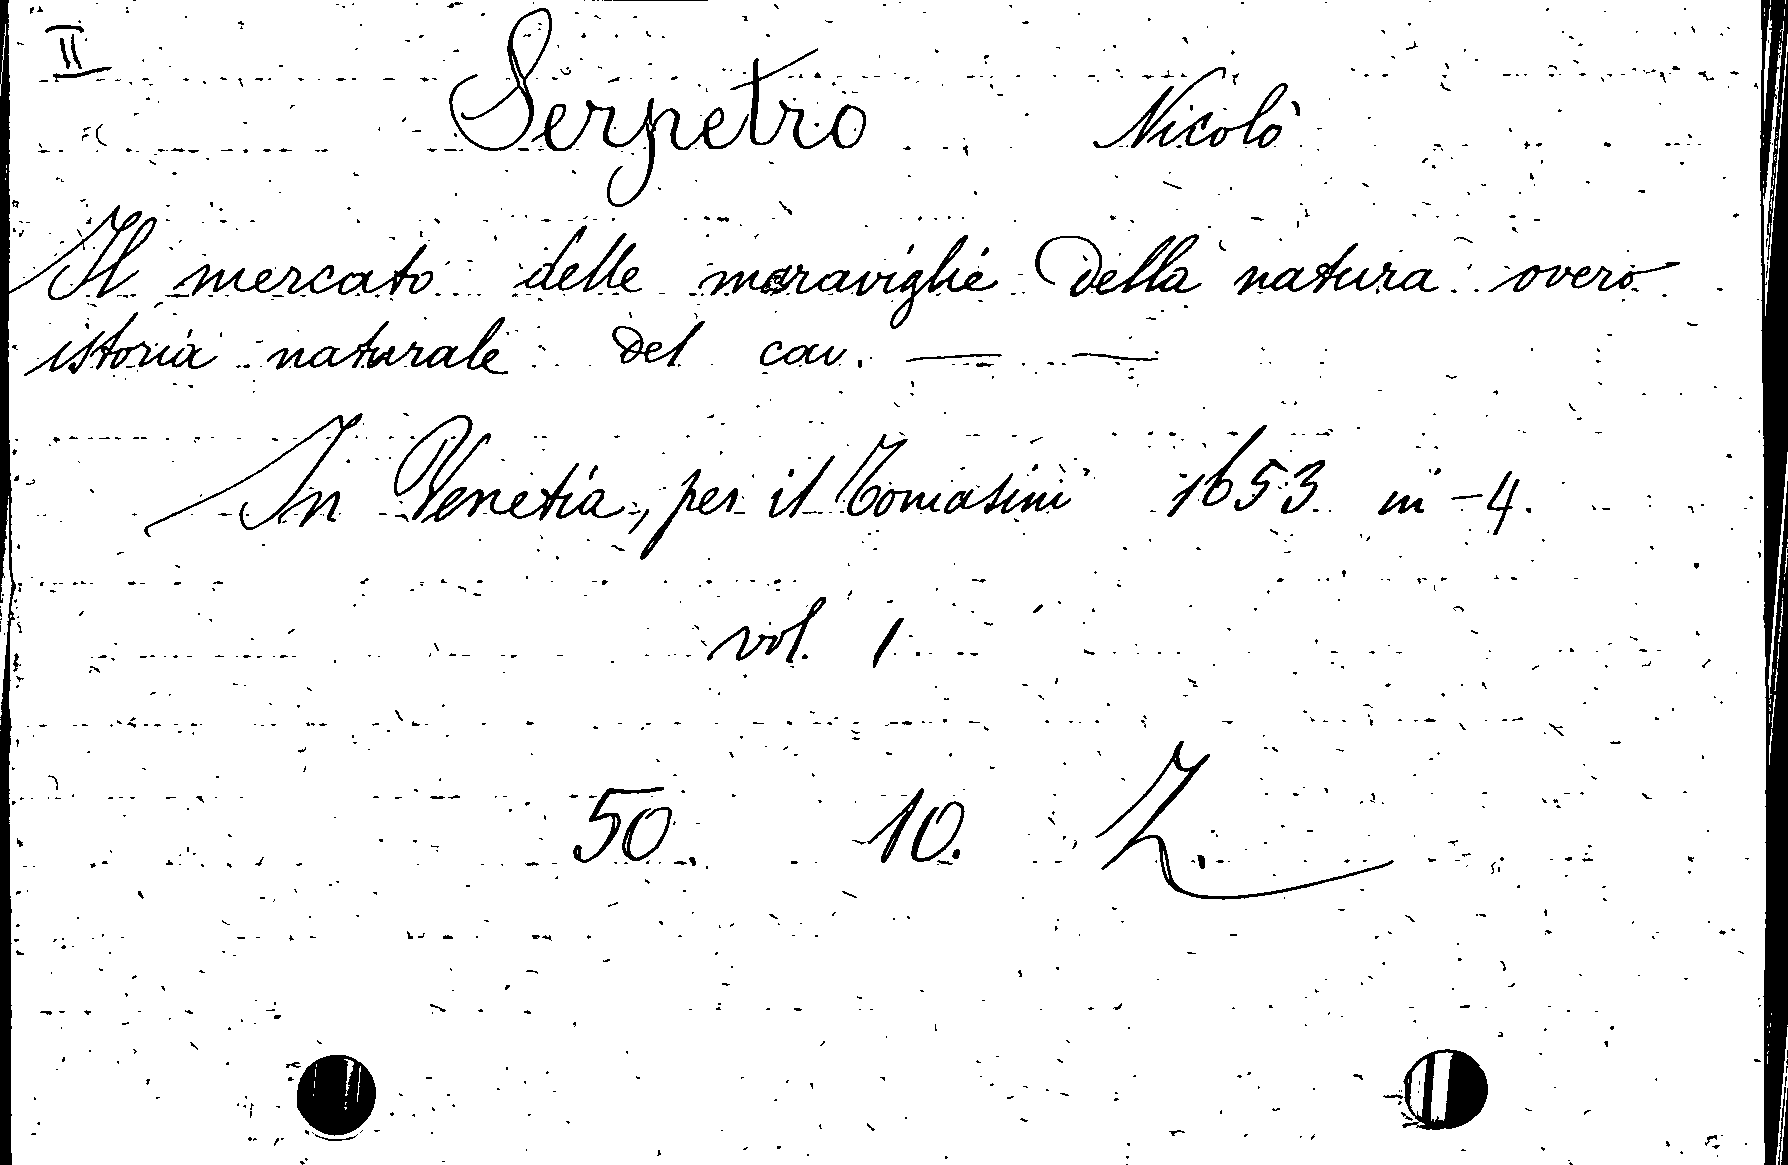 II
Serpetro Nicolò
Il mercato delle maraviglie della natura overo
istoria naturale del cav. — —
In Venetia, per il Tomasini 1653 in-4.
vol. 1
50. 10. Z.